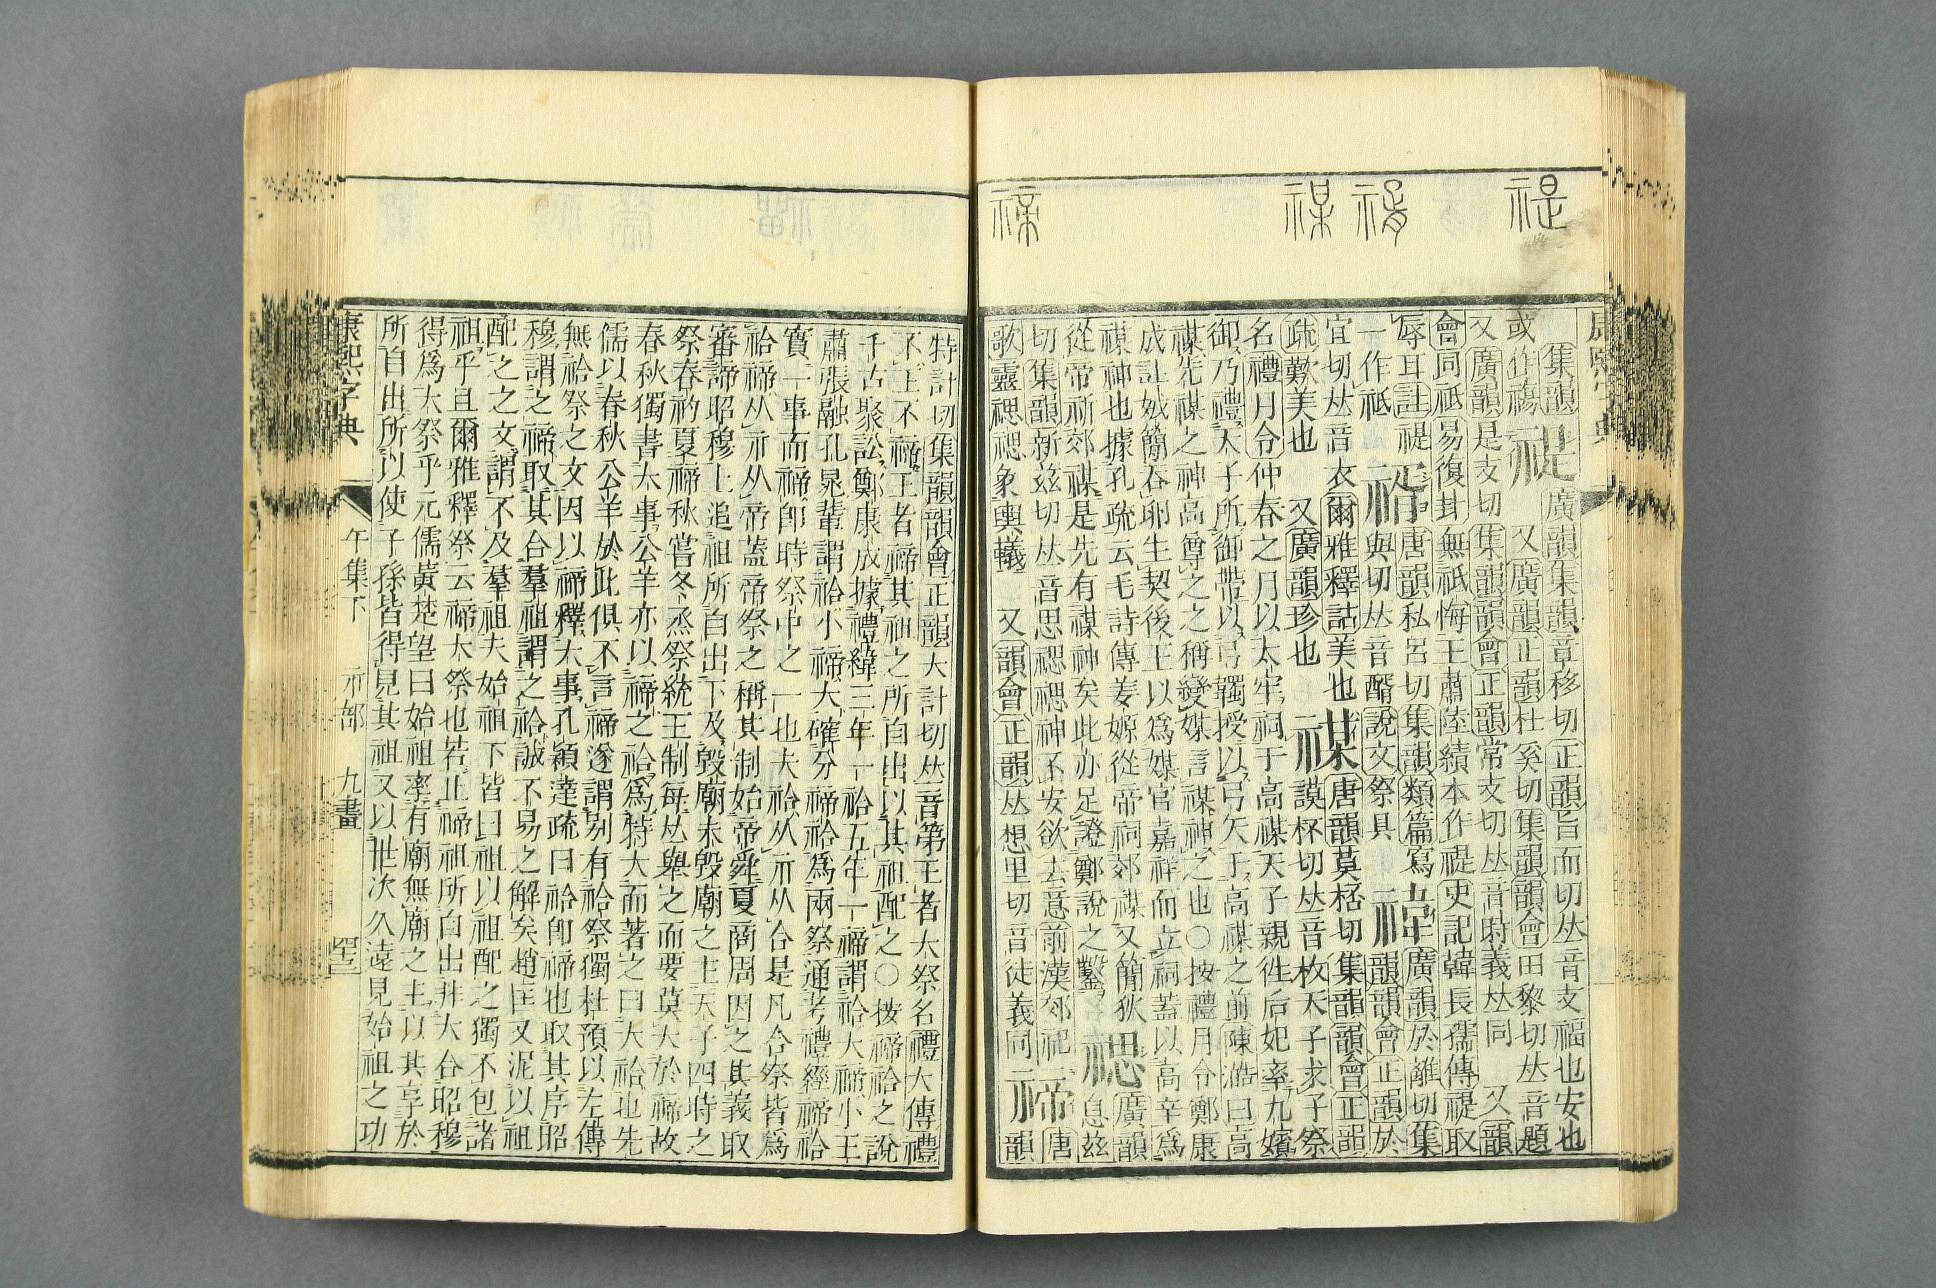 禔 禠 禖 禘
康熙字典
集韻
或作禓禔廣韻集韻章移切正韻旨而切𠀤音支福也安也
又廣韻正韻杜奚切集韻韻會田黎切𠀤音題
又廣韻是支切集韻韻會正韻常支切𠀤音時義𠀤同 又韻
會同祗易復卦無祇悔王肅陸績本作禔史記韓長孺傳禔取
辱耳註禔
一作祗
唐韻私呂切集韻類篇寫
與切𠀤音醑說文祭具
禕廣韻於離切集
韻韻會正韻於
宜切𠀤音衣爾雅釋詁美也
疏歎美也 又廣韻珍也
禖唐韻莫桮切集韻韻會正韻
謨杯切𠀤音枚天子求子祭
名禮月令仲春之月以太牢祠于高禖天子親往后妃率九嬪
御乃禮天子所御帶以弓韣授以弓矢于高禖之前陳澔曰高
禖先禖之神高尊之之稱變媒言禖神之也○按禮月令鄭康
成註娀簡吞卵生契後王以爲媒官嘉祥而立祠蓋以高辛爲
禖神也據孔疏云毛詩傳姜嫄從帝祠郊禖又簡狄
從帝祈郊禖是先有禖神矣此亦足證鄭說之鑿
禗廣韻息兹
切集韻新兹切𠀤音思禗禗神不安欲去意前漢郊祀
歌靈禗禗象輿轙 又韻會正韻𠀤想里切音徙義同
禘唐韻
特計切集韻韻會正韻大計切𠀤音第王者大祭名禮大傳禮
不王不禘王者禘其祖之所自出以其祖配之○按禘祫之說
千古聚訟鄭康成據禮緯三年一祫五年一禘謂祫大禘小王
肅張融孔晁輩謂祫小禘大確分禘祫爲兩祭通考禮經禘祫
實一事而禘卽時祭中之一也夫祫从示从合是凡合祭皆爲
祫禘从示从帝蓋帝祭之稱其制始帝舜夏商周因之其義取
審諦昭穆上追祖所自出下及毀廟未毀廟之主天子四時之
祭春礿夏禘秋嘗冬烝祭統王制每𠀤舉之而要莫大於禘故
春秋獨書大事公羊亦以禘之祫爲特大而著之曰大祫也先
儒以春秋公羊於此俱不言禘遂謂別有祫祭獨杜預以左傳
無祫祭之文因以禘釋大事孔穎達疏曰祫卽禘也取其序昭
穆謂之禘取其合羣祖謂之祫誠不易之解矣趙匡又泥以祖
配之之文謂不及羣祖夫始祖下皆曰祖以祖配之獨不包諸
祖乎且爾雅釋祭云禘大祭也若止禘祖所自出非大合昭穆
得爲大祭乎元儒黃楚望曰始祖率有廟無廟之主以其享於
所自出所以使子孫皆得見其祖又以世次久遠見始祖之功
康熙字典 午集下 示部 九畫